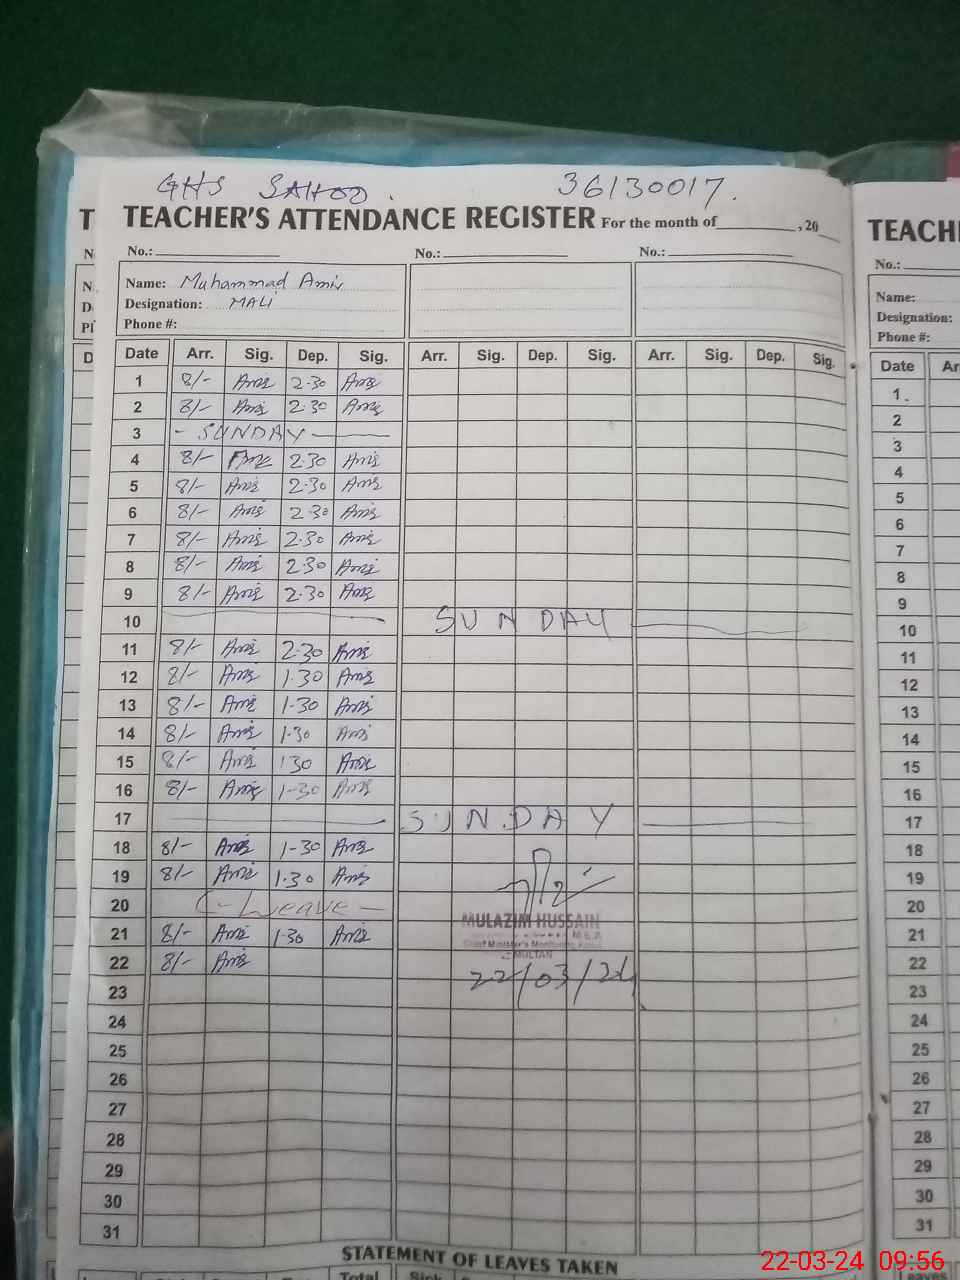 GHS SAHOO. 36130017.
TEACHER'S ATTENDANCE REGISTER For the month of , 20
No.: No.: No.:
Name: Muhammad Amir
Designation: MALI
Phone #:
Date Arr. Sig. Dep. Sig. Arr. Sig. Dep. Sig. Arr. Sig. Dep. Sig.
1 8/- Amir 2-30 Amir
2 8/- Amir 2-30 Amir
3 - SUNDAY -
4 8/- Amir 2-30 Amir
5 8/- Amir 2-30 Amir
6 8/- Amir 2-30 Amir
7 8/- Amir 2-30 Amir
8 8/- Amir 2-30 Amir
9 8/- Amir 2-30 Amir
10 SUNDAY
11 8/- Amir 2-30 Amir
12 8/- Amir 1-30 Amir
13 8/- Amir 1-30 Amir
14 8/- Amir 1-30 Amir
15 8/- Amir 130 Amir
16 8/- Amir 1-30 Amir
17 SUNDAY
18 8/- Amir 1-30 Amir
19 8/- Amir 1-30 Amir
20 C-Leave -
MULAZIM HUSSAIN
21 8/- Amir 1-30 Amir
M.E.A
Chief Minister's Monitoring Force
MULTAN
22 8/- Amir
22/03/24
23
24
25
26
27
28
29
30
31
STATEMENT OF LEAVES TAKEN
Total Sick
TEACH
No.:
Name:
Designation:
Phone #:
Date Ar
1
2
3
4
5
6
7
8
9
10
11
12
13
14
15
16
17
18
19
20
21
22
23
24
25
26
27
28
29
30
31
22-03-24 09:56